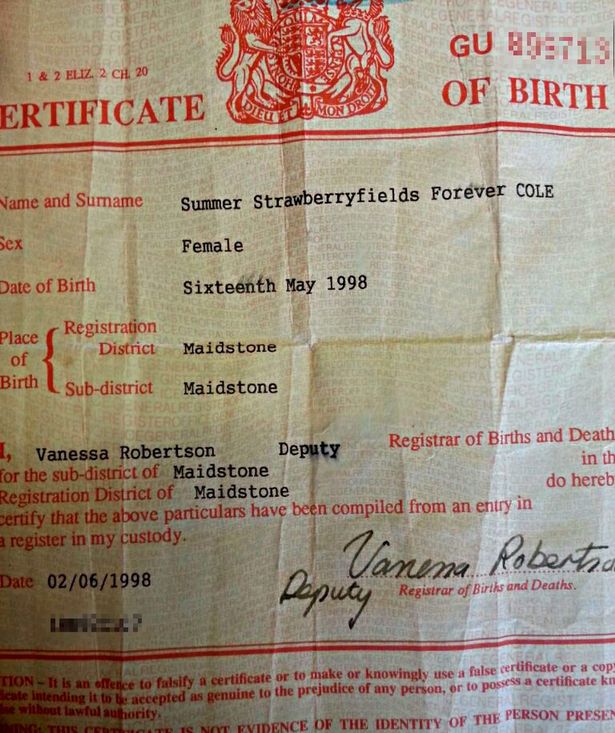 GU
1 & 2 ELIZ. 2 CH. 20
DIEU ET MON DROIT
ERTIFICATE OF BIRTH
Name and Surname Summer Strawberryfields Forever COLE
Sex Female
Date of Birth Sixteenth May 1998
Place of Birth { Registration District Maidstone
Sub-district Maidstone
I, Vanessa Robertson Deputy Registrar of Births and Death
for the sub-district of Maidstone in th
Registration District of Maidstone do hereb
certify that the above particulars have been compiled from an entry in
a register in my custody.
Vanessa Robertso
Date 02/06/1998 Deputy Registrar of Births and Deaths.
TION – It is an offence to falsify a certificate or to make or knowingly use a false certificate or a copy
icate intending it to be accepted as genuine to the prejudice of any person, or to possess a certificate kn
se without lawful authority.
NING: THIS CERTIFICATE IS NOT EVIDENCE OF THE IDENTITY OF THE PERSON PRESEN